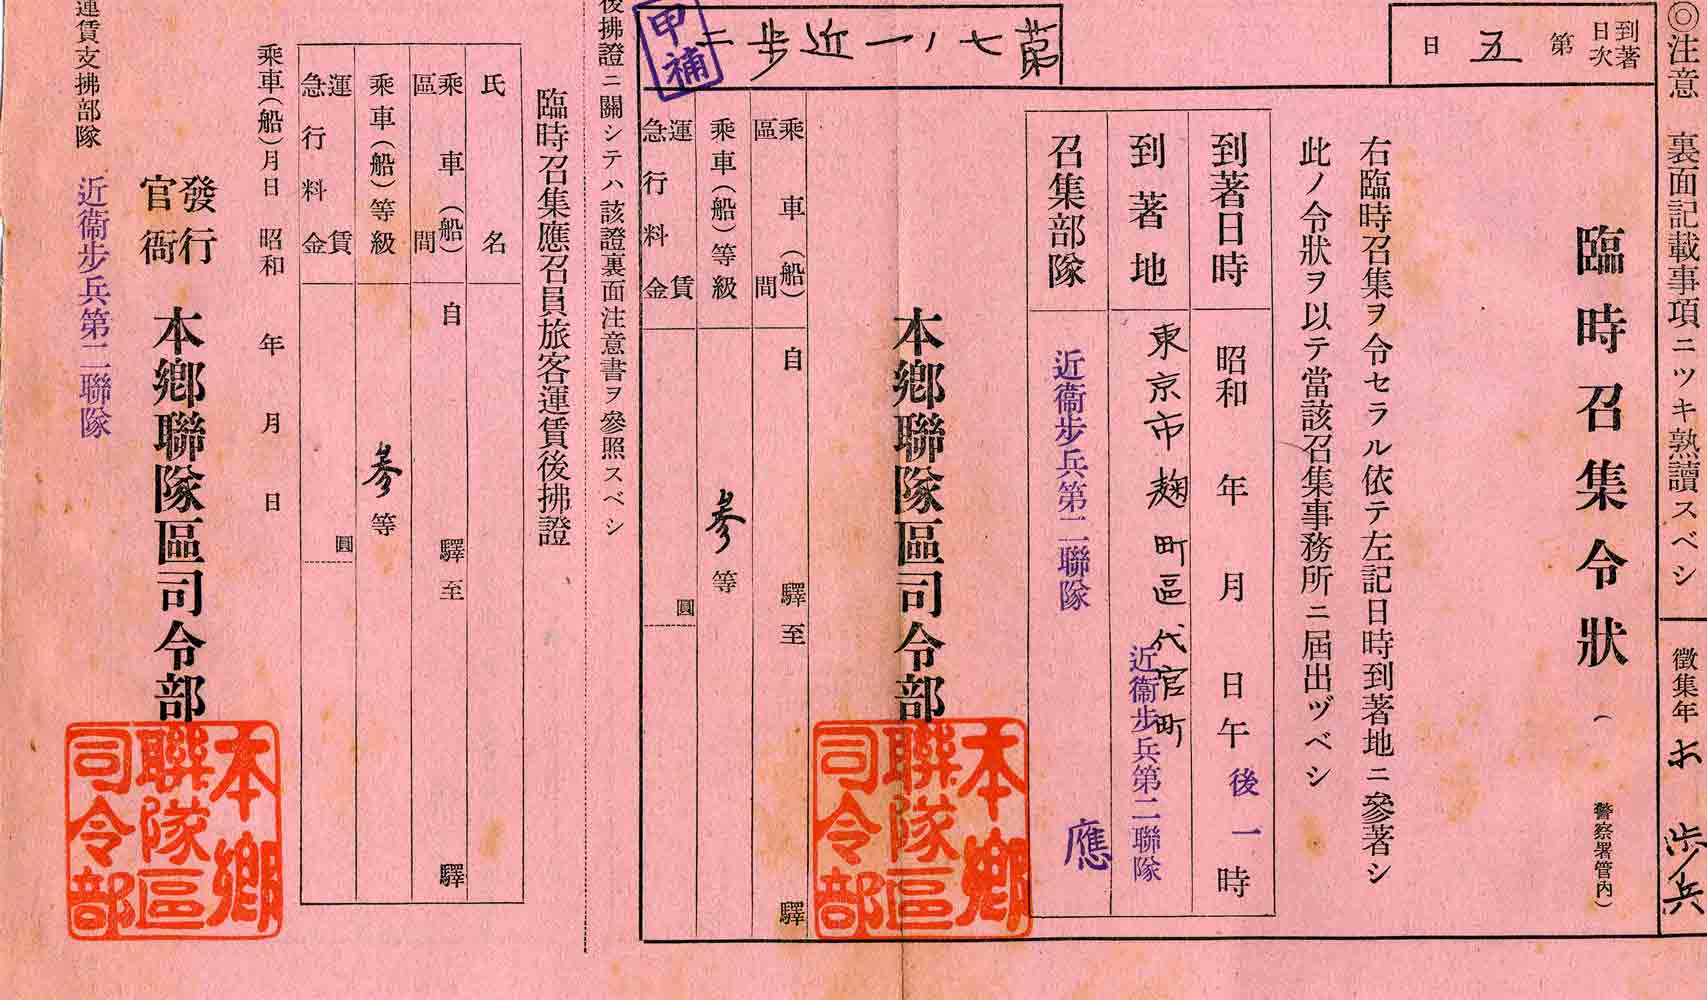 ◎注意　裏面記載事項ニツキ熟讀スベシ
徵集年
歩兵
到著日次
第五日
臨時召集令狀
（　警察署管内）
右臨時召集ヲ令セラル依テ左記日時到著地ニ參著シ
此ノ令狀ヲ以テ當該召集事務所ニ屆出ヅベシ
到著日時　昭和　年　月　日午後一時
到著地　東京市麹町區代官町
近衞步兵第二聯隊
召集部隊　近衞步兵第二聯隊
應
第七ノ一近歩二
甲補
本鄕聯隊區司令部
本鄕聯隊區司令部
乘車（船）區間　自　驛至　驛
乘車（船）等級　參等
運賃
急行料金　圓
後拂證ニ關シテハ該證裏面注意書ヲ參照スベシ
臨時召集應召員旅客運賃後拂證
氏名
乘車（船）區間　自　驛至　驛
乘車（船）等級　參等
運賃
急行料金　圓
乘車（船）月日　昭和　年　月　日
發行官衙　本鄕聯隊區司令部
本鄕聯隊區司令部
運賃支拂部隊　近衞步兵第二聯隊